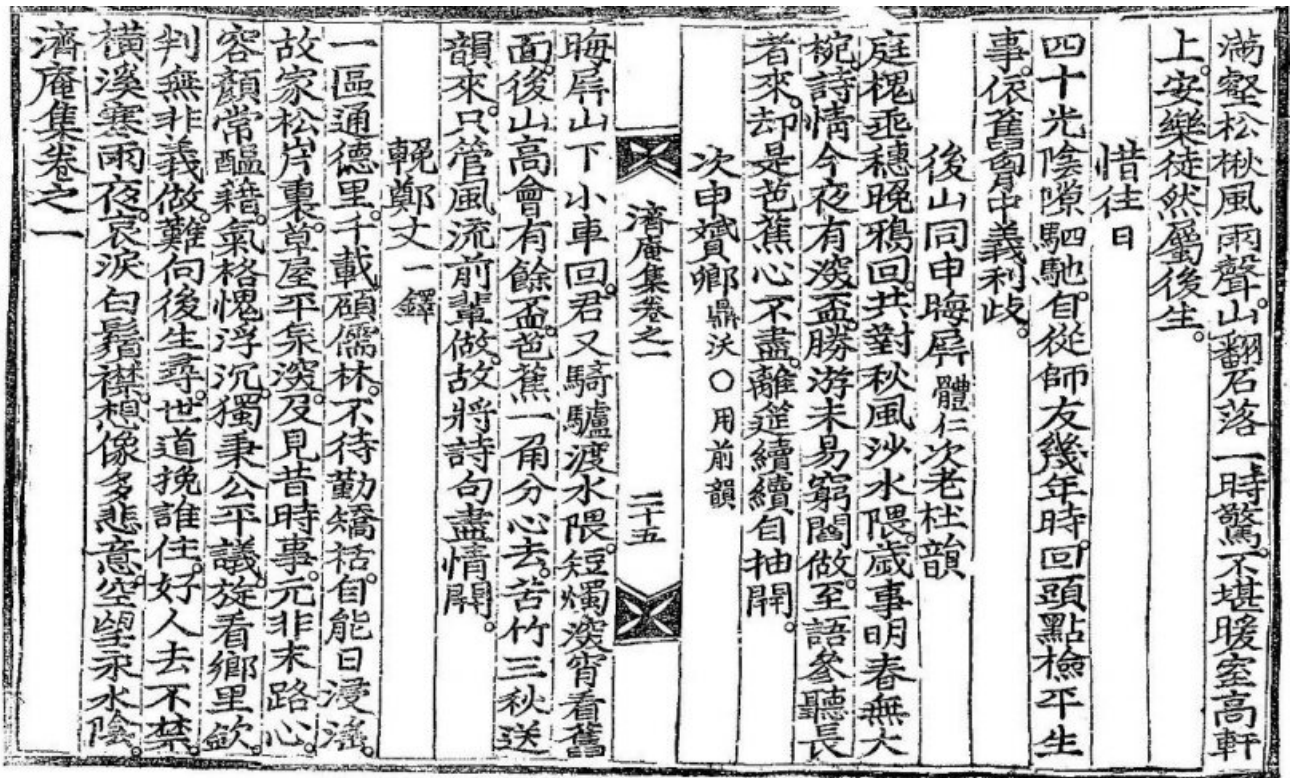 滿壑松楸風雨聲。山翻石落一時驚。不堪暖室高軒
上。安樂徒然屬後生。
惜往日
四十光陰隙駟馳。自從師友幾年時。回頭點檢平生
事。依舊胷中義利歧。
後山同申晦屛體仁次老杜韻
庭槐垂穗晚鴉回。共對秋風沙水隈。歲事明春無大
椀。詩情今夜有深盃。勝游未易窮閻做。至語參聽長
者來。却是芭蕉心不盡。離筵續續自抽開。
次申贇鄉鼎沃○用前韻
濟庵集卷之一 二十五
晦屛山下小車回。君又騎驢渡水隈。短燭深宵看舊
面。後山高會有餘盃。芭蕉一甬分心去。苦竹三秋送
韻來。只管風流前輩做。故將詩句盡情開。
輓鄭丈一鐸
一區通德里。千載碩儒林。不待勤矯括。自能日浸淫。
故家松岸裏。草屋平泉深。及見昔時事。元非末路心。
容顏常醞藉。氣格愧浮沉。獨秉公平議。旋看鄉里欽。
判無非義做。難向後生尋。世道挽誰住。好人去不禁。
橫溪寒雨夜。哀淚白鬚襟。想像多悲意。空望汞水陰。
濟庵集卷之一